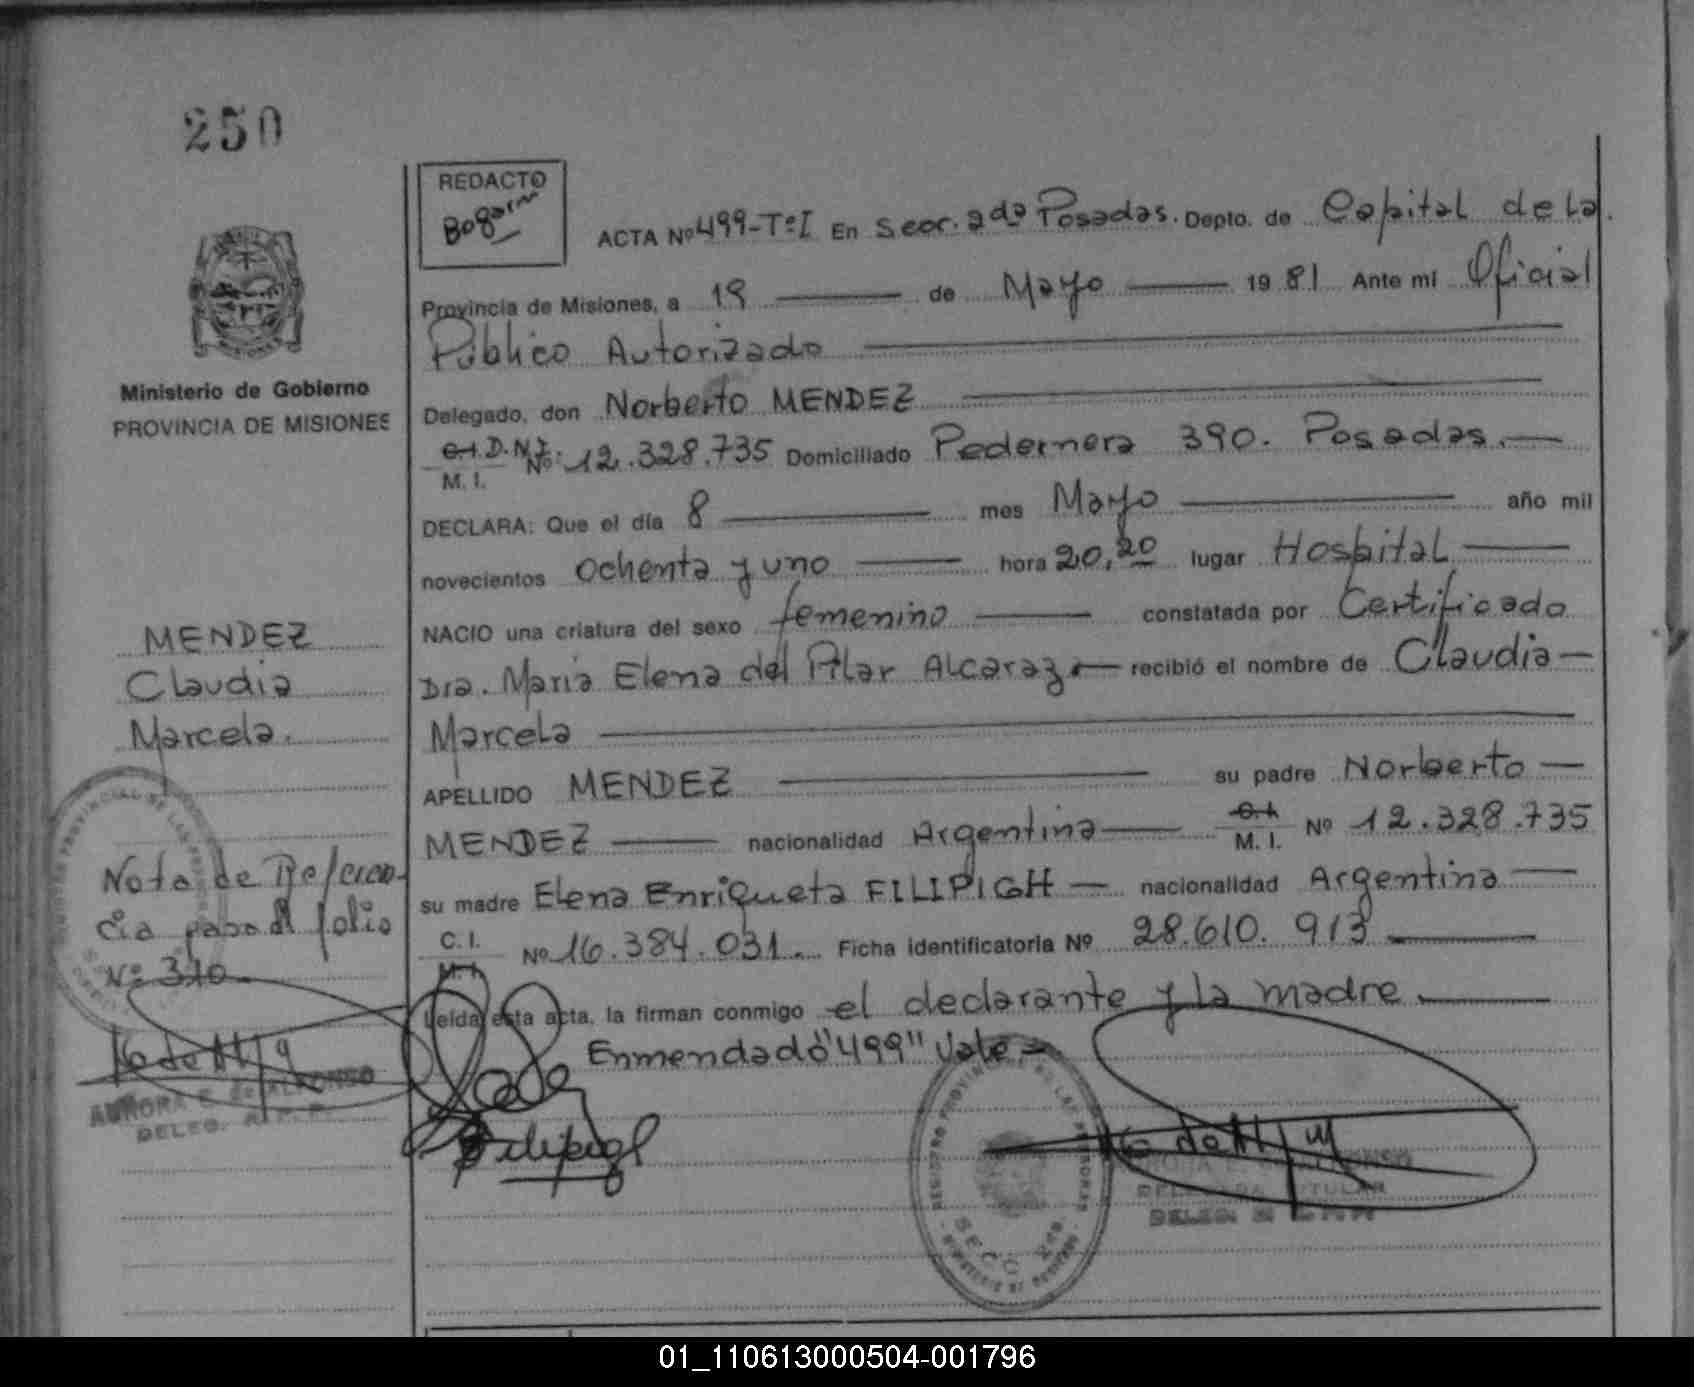 250
REDACTO
Bogarin
ACTA Nº 499-TºI En Secc. 2da Posadas. Depto. de Capital de la
Provincia de Misiones, a 19 de Mayo 1981 Ante mí Oficial
Público Autorizado
Ministerio de Gobierno
PROVINCIA DE MISIONES
Delegado, don Norberto MENDEZ
C.I. D.N.I. M. I. Nº 12.328.735 Domiciliado Pedernera 390. Posadas.
DECLARA: Que el día 8 mes Mayo año mil
novecientos ochenta y uno hora 20,20 lugar Hospital
NACIO una criatura del sexo femenino constatada por Certificado
Dra. Maria Elena del Pilar Alcaraz recibió el nombre de Claudia
Marcela
APELLIDO MENDEZ su padre Norberto
MENDEZ nacionalidad Argentina C.I. M. I. Nº 12.328.735
su madre Elena Enriqueta FILIPIGH nacionalidad Argentina
C. I. M. I. Nº 16.384.031. Ficha identificatoria Nº 28.610.913
Leída esta acta, la firman conmigo el declarante y la madre
Enmendado "499" Vale
MENDEZ
Claudia
Marcela.
Nota de Referen-
cia pasa al folio
Nº 310
AURORA E. de ALFONSO
DELEG.
REGISTRO PROVINCIAL DE LAS PERSONAS
MINISTERIO DE GOBIERNO
DELEGADA TITULAR
01_110613000504-001796